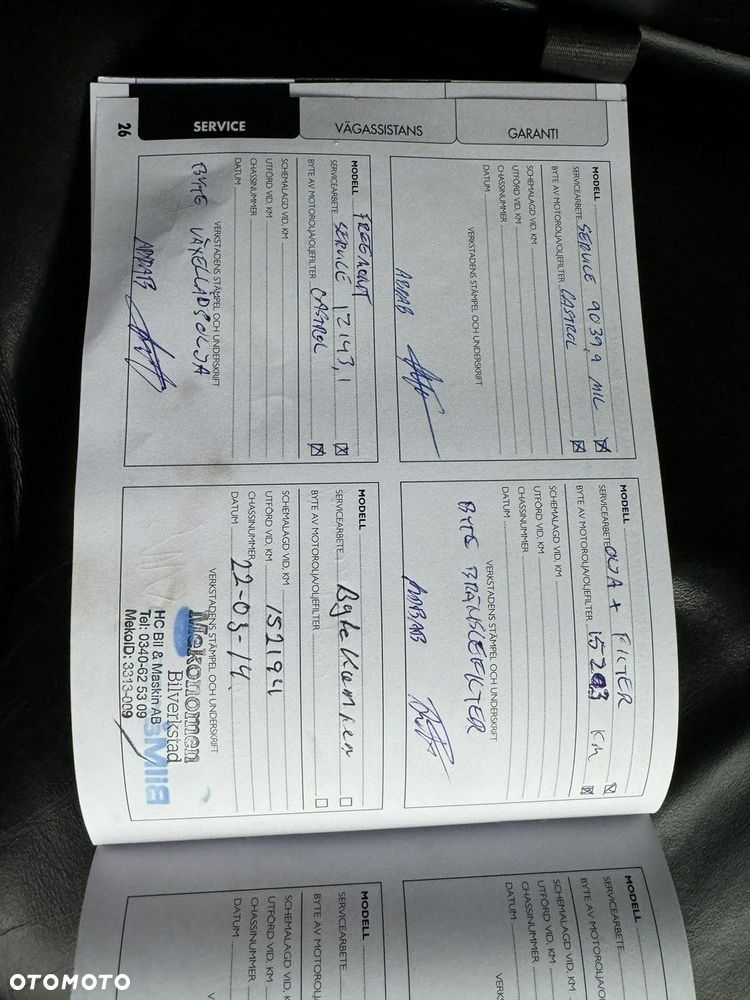 GARANTI
VÄGASSISTANS
SERVICE
26
MODELL
SERVICEARBETE SERVICE 9039,9 MIL
BYTE AV MOTOROLJA/OLJEFILTER CASTROL
SCHEMALAGD VID, KM
UTFÖRD VID, KM
CHASSINUMMER
DATUM
VERKSTADENS STÄMPEL OCH UNDERSKRIFT
MODELL
SERVICEARBETE OLJA + FILTER
BYTE AV MOTOROLJA/OLJEFILTER KM
SCHEMALAGD VID, KM
UTFÖRD VID, KM
CHASSINUMMER
DATUM
VERKSTADENS STÄMPEL OCH UNDERSKRIFT
BYTE BRÄNSLEFILTER
MODELL FREEMONT
SERVICEARBETE SERVICE 12143,1
BYTE AV MOTOROLJA/OLJEFILTER CASTROL
SCHEMALAGD VID, KM
UTFÖRD VID, KM
CHASSINUMMER
DATUM
VERKSTADENS STÄMPEL OCH UNDERSKRIFT
BYTE VÄXELLÅDSOLJA
MODELL
SERVICEARBETE Byte Kamrem
BYTE AV MOTOROLJA/OLJEFILTER
SCHEMALAGD VID, KM
UTFÖRD VID, KM 152194
CHASSINUMMER
DATUM 22-03-14
VERKSTADENS STÄMPEL OCH UNDERSKRIFT
Mekonomen
Bilverkstad
HC Bil & Maskin AB
Tel: 0340-62 53 09
MekoID: 3313-009
MODELL
SERVICEARBETE
BYTE AV MOTOROLJA/O
SCHEMALAGD VID, KM
UTFÖRD VID, KM
CHASSINUMMER
DATUM
VERKSTADENS
MODELL
SERVICEARBETE
BYTE AV MOTOROLJA/OL
SCHEMALAGD VID, KM
UTFÖRD VID, KM
CHASSINUMMER
DATUM
VERKSTADENS
OTOMOTO